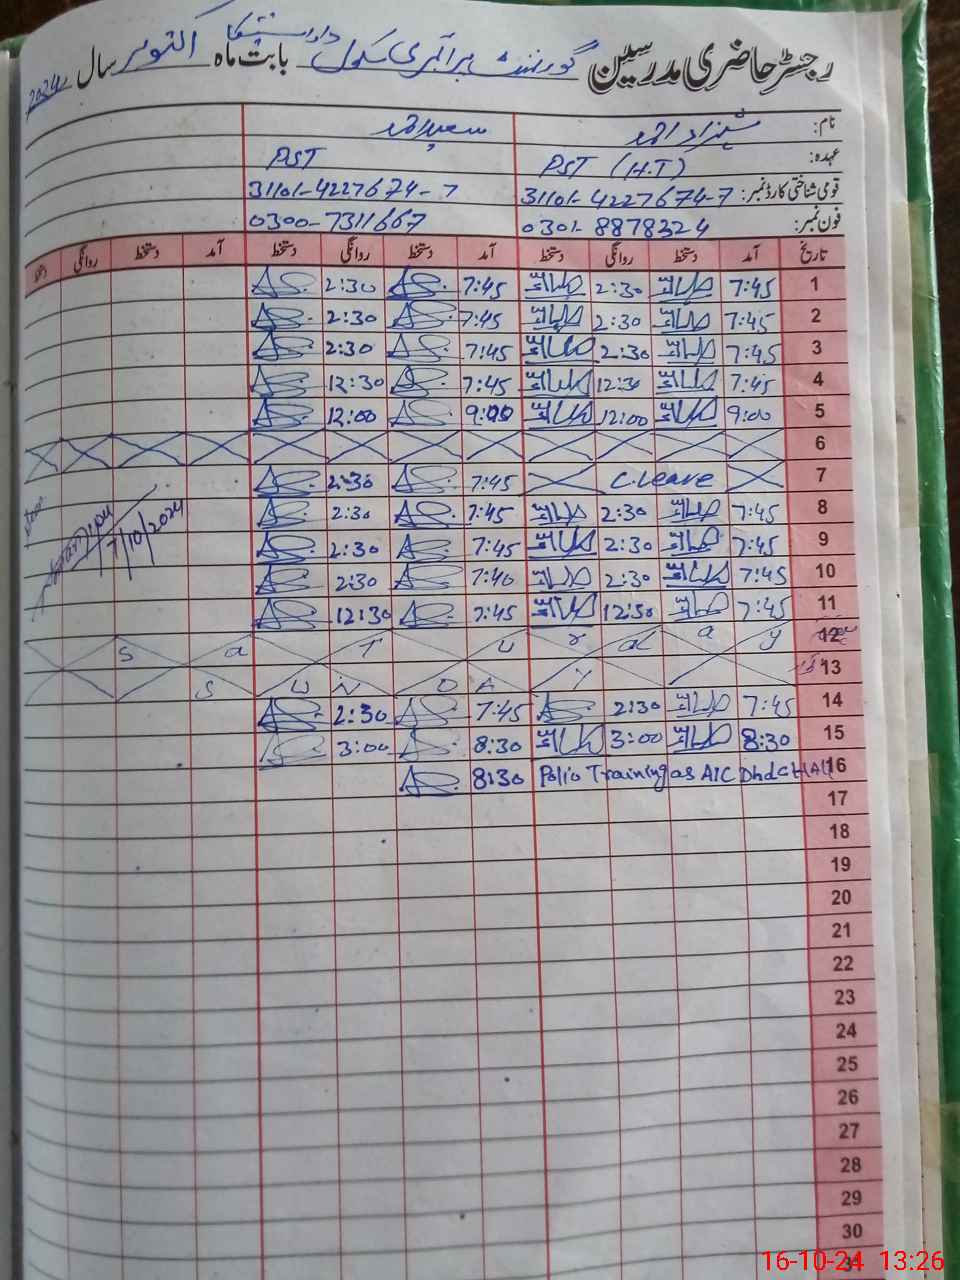 رجسٹر حاضری مدرسین گورنمنٹ پرائمری سکول بابت ماہ اکتوبر سال 2024
نام: شہزاد احمد سعید احمد
عہدہ: PST (H.T) PST
قومی شناختی کارڈ نمبر: 31101-4227674-7 31101-4227674-7
فون نمبر: 0301-8878324 0300-7311667
تاریخ آمد دستخط روانگی دستخط آمد دستخط روانگی دستخط آمد دستخط روانگی
1 7:45 2:30 7:45 2:30
2 7:45 2:30 7:45 2:30
3 7:45 2:30 7:45 2:30
4 7:45 12:30 7:45 12:30
5 9:00 12:00 9:00 12:00
6
7 C.leave 7:45 2:30
8 7:45 2:30 7:45 2:30
7/10/2024
9 7:45 2:30 7:45 2:30
10 7:45 2:30 7:40 2:30
11 7:45 12:30 7:45 12:30
12 S a T u r d a y
13 S U N D A Y
14 7:45 2:30 7:45 2:30
15 8:30 3:00 8:30 3:00
16 8:30 Polio Training as AIC
17
18
19
20
21
22
23
24
25
26
27
28
29
30
31
16-10-24 13:26